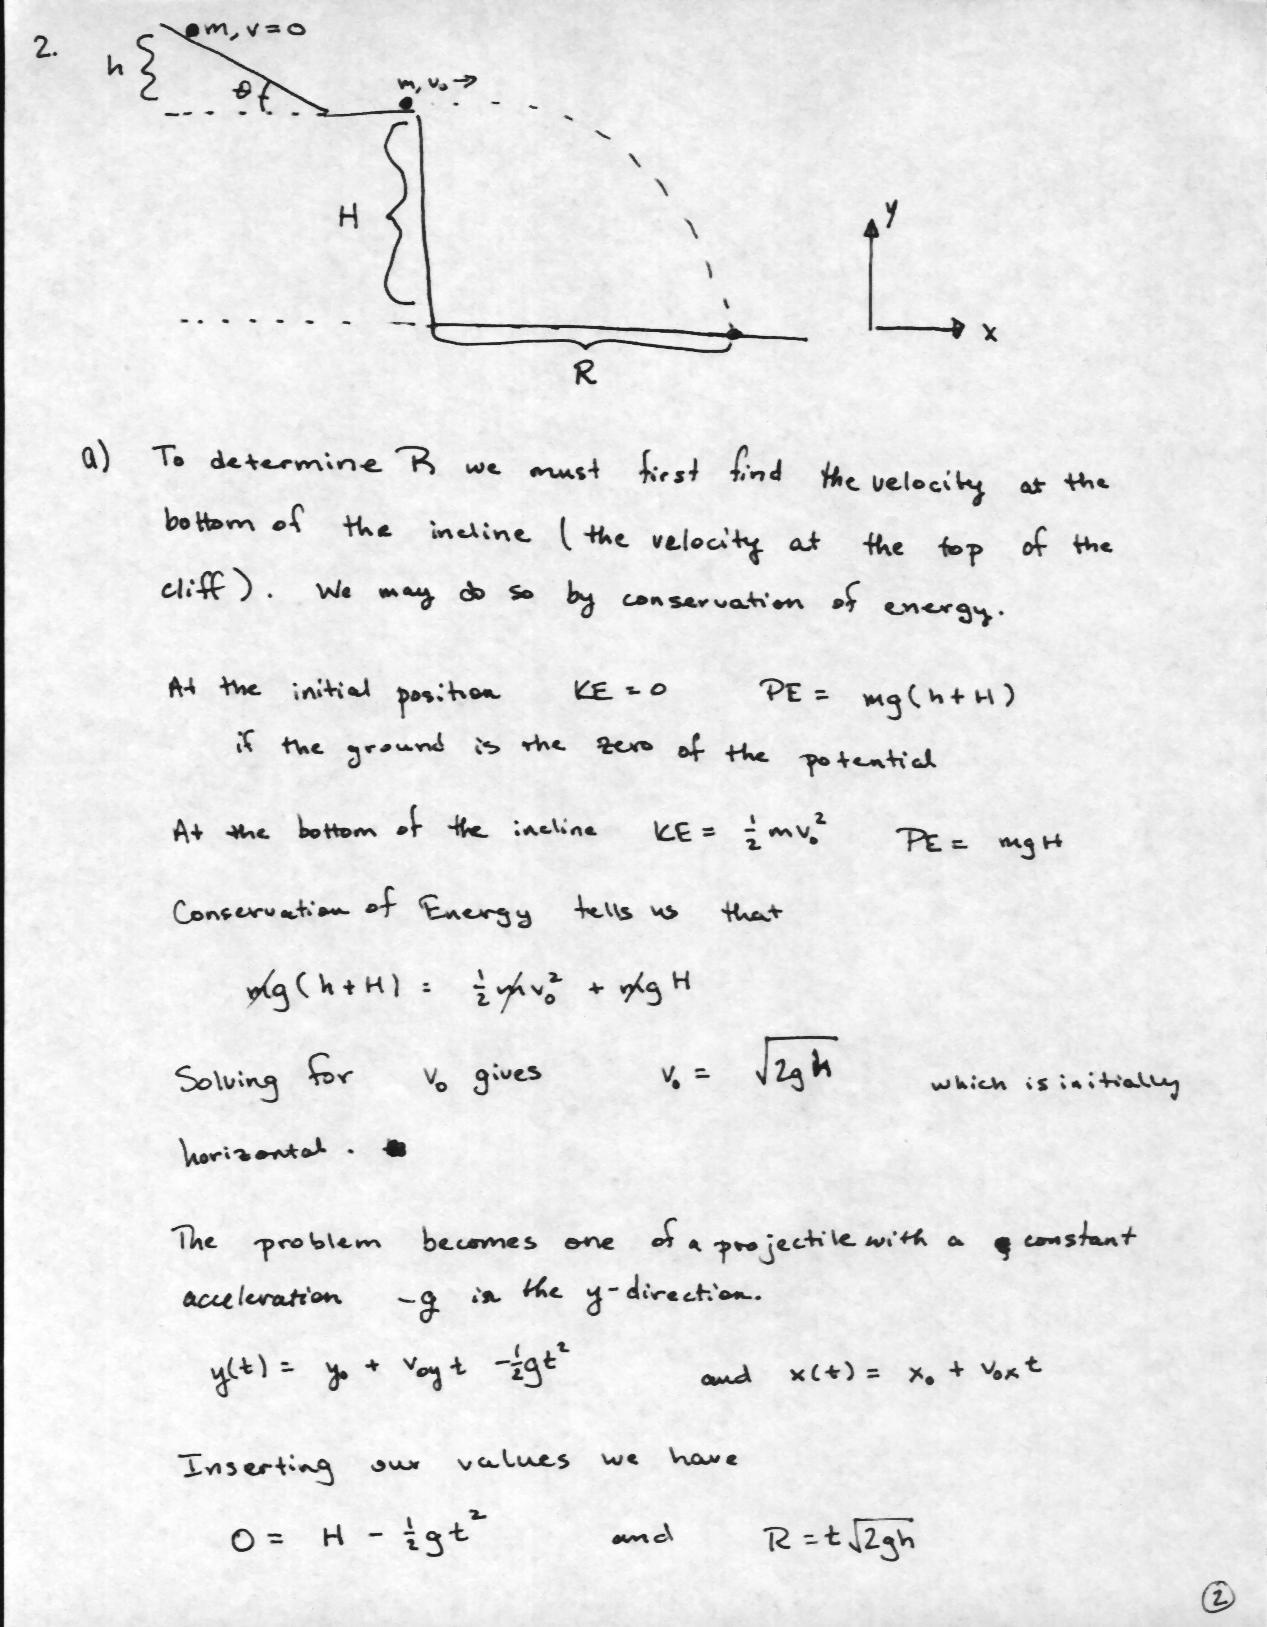 2.
m, v=0
h
θ
m, v₀ →
H
y
x
R
a) To determine R we must first find the velocity at the
bottom of the incline (the velocity at the top of the
cliff). We may do so by conservation of energy.
At the initial position KE = 0 PE = mg(h+H)
if the ground is the zero of the potential
At the bottom of the incline KE = ½mv₀² PE = mgH
Conservation of Energy tells us that
mg(h+H) = ½mv₀² + mgH
Solving for v₀ gives v₀ = √(2gh) which is initially
horizontal.
The problem becomes one of a projectile with a constant
acceleration -g in the y-direction.
y(t) = y₀ + v₀yt -½gt² and x(t) = x₀ + v₀xt
Inserting our values we have
0 = H - ½gt² and R = t√(2gh)
2